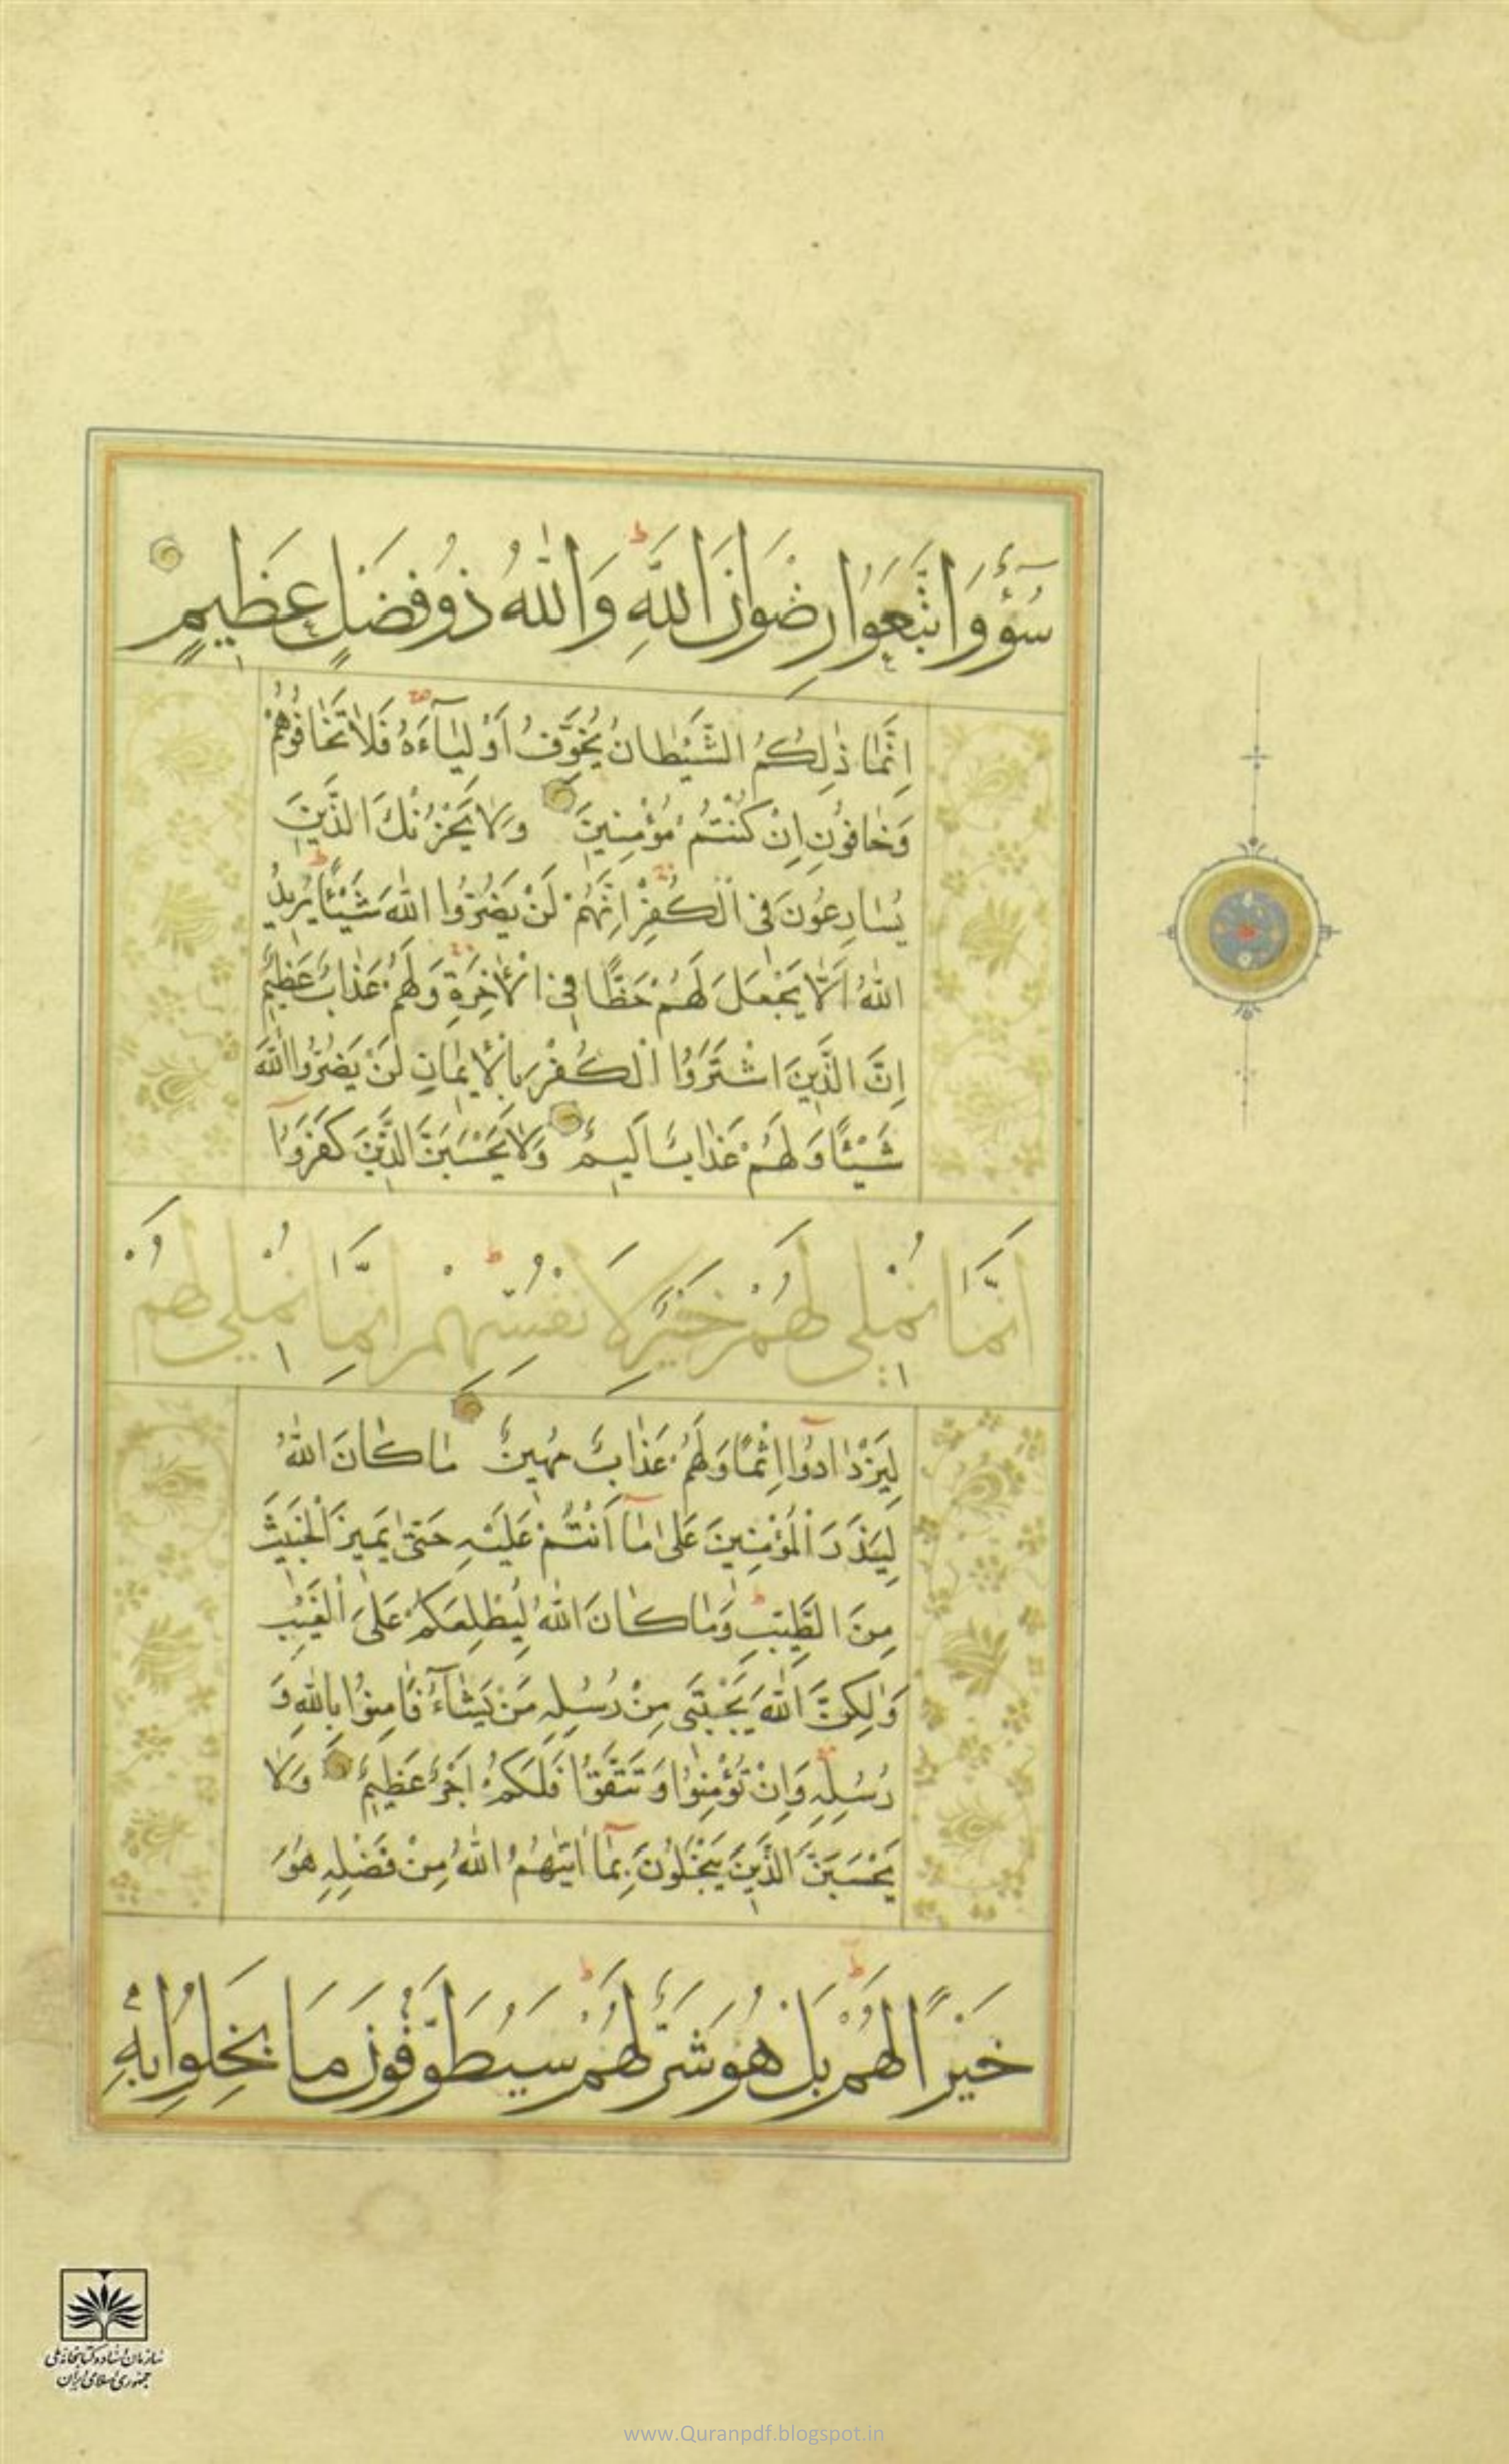 سُوٓءٌ وَاتَّبَعُوا رِضْوَانَ اللّٰهِ وَاللّٰهُ ذُو فَضْلٍ عَظِيمٍ
اِنَّمَا ذٰلِكُمُ الشَّيْطَانُ يُخَوِّفُ اَوْلِيَآءَهُ فَلَا تَخَافُوهُمْ
وَخَافُونِ اِنْ كُنْتُمْ مُؤْمِنِينَ وَلَا يَحْزُنْكَ الَّذِينَ
يُسَارِعُونَ فِي الْكُفْرِ اِنَّهُمْ لَنْ يَضُرُّوا اللّٰهَ شَيْئًا يُرِيدُ
اللّٰهُ اَلَّا يَجْعَلَ لَهُمْ حَظًّا فِي الْاٰخِرَةِ وَلَهُمْ عَذَابٌ عَظِيمٌ
اِنَّ الَّذِينَ اشْتَرَوُا الْكُفْرَ بِالْاِيمَانِ لَنْ يَضُرُّوا اللّٰهَ
شَيْئًا وَلَهُمْ عَذَابٌ اَلِيمٌ وَلَا يَحْسَبَنَّ الَّذِينَ كَفَرُوٓا
اَنَّمَا نُمْلِي لَهُمْ خَيْرٌ لِاَنْفُسِهِمْ اِنَّمَا نُمْلِي لَهُمْ
لِيَزْدَادُوٓا اِثْمًا وَلَهُمْ عَذَابٌ مُهِينٌ مَا كَانَ اللّٰهُ
لِيَذَرَ الْمُؤْمِنِينَ عَلٰى مَٓا اَنْتُمْ عَلَيْهِ حَتّٰى يَمِيزَ الْخَبِيثَ
مِنَ الطَّيِّبِ وَمَا كَانَ اللّٰهُ لِيُطْلِعَكُمْ عَلَى الْغَيْبِ
وَلٰكِنَّ اللّٰهَ يَجْتَبِي مِنْ رُسُلِهِ مَنْ يَشَآءُ فَاٰمِنُوا بِاللّٰهِ وَ
رُسُلِهِ وَاِنْ تُؤْمِنُوا وَتَتَّقُوا فَلَكُمْ اَجْرٌ عَظِيمٌ وَلَا
يَحْسَبَنَّ الَّذِينَ يَبْخَلُونَ بِمَٓا اٰتٰيهُمُ اللّٰهُ مِنْ فَضْلِهِ هُوَ
خَيْرًا لَهُمْ بَلْ هُوَ شَرٌّ لَهُمْ سَيُطَوَّقُونَ مَا بَخِلُوا بِهِ
سازمان اسناد و کتابخانه ملی
جمهوری اسلامی ایران
www.Quranpdf.blogspot.in